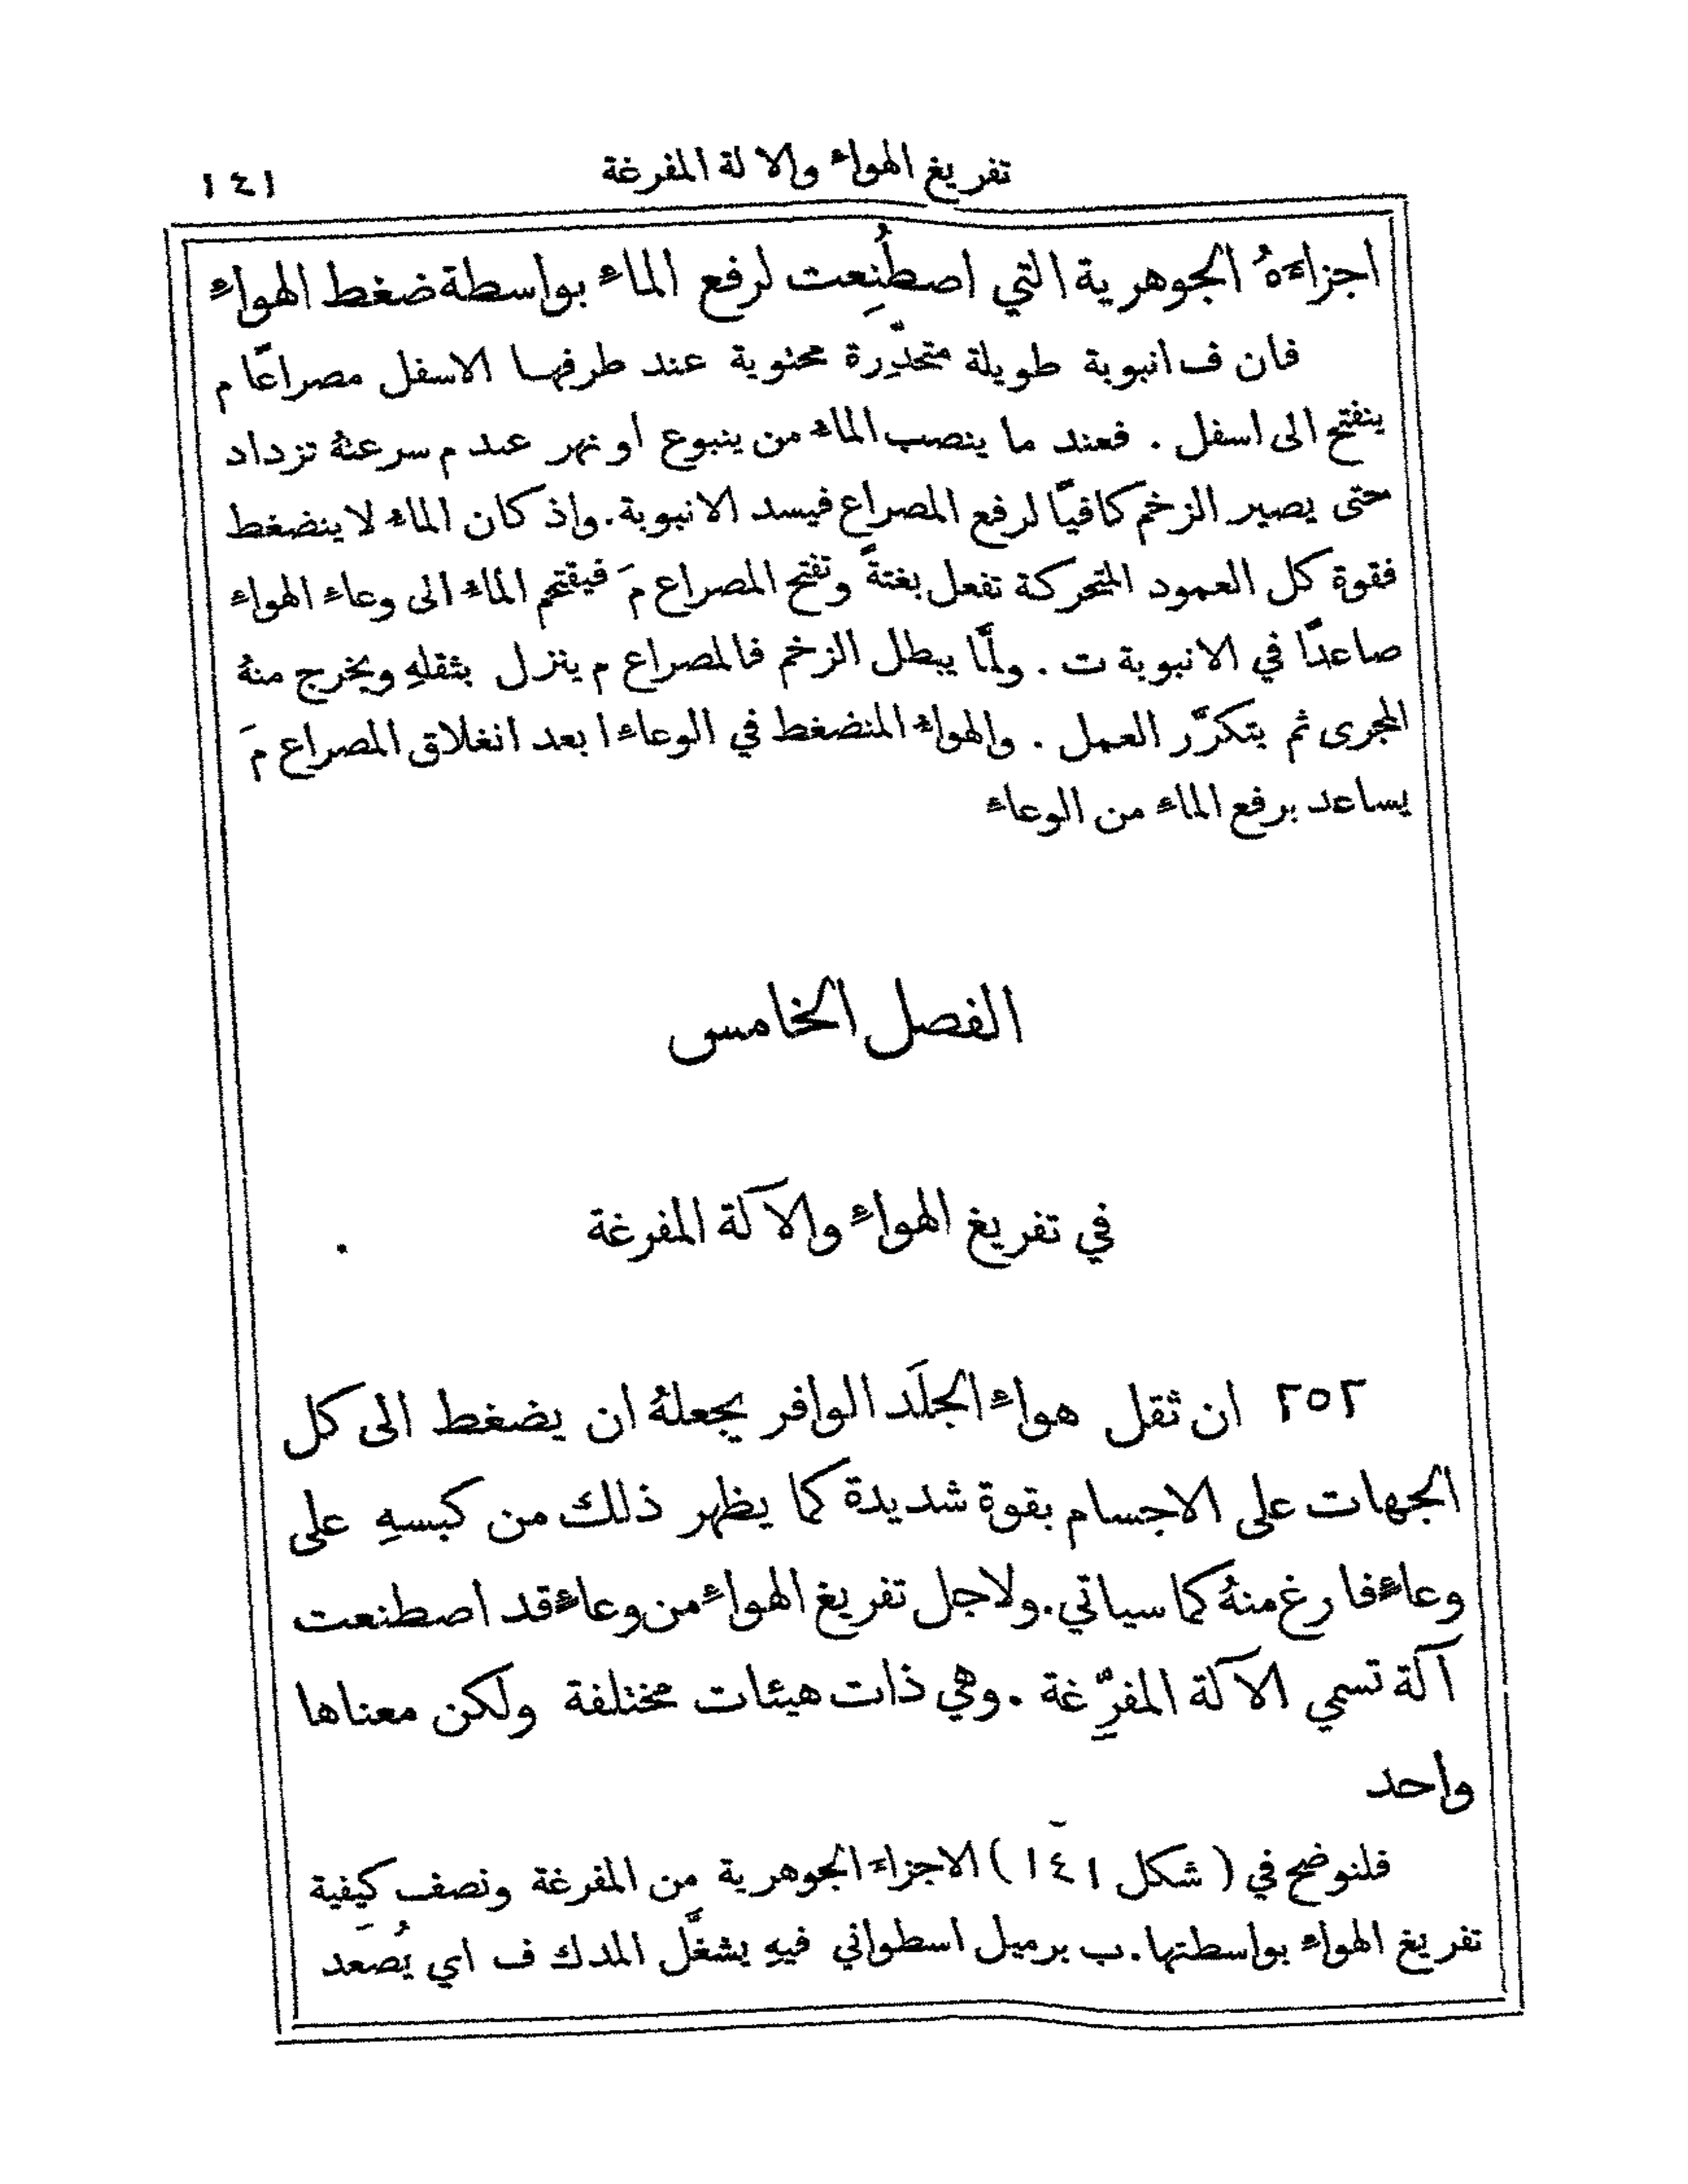 تفريغ الهواء والالة المفرغة ١٤١
اجزاءَهُ الجوهرية التي اصطُنِعت لرفع الماء بواسطة ضغط الهواء
فان ف انبوبة طويلة متحدِّرة محنوية عند طرفها الاسفل مصراعًا م
ينفتح الى اسفل . فعند ما ينصب الماء من ينبوع او نهر عند م سرعتهُ تزداد
حتى يصير الزخم كافيًا لرفع المصراع فيسد الانبوبة. واذ كان الماء لا ينضغط
فقوة كل العمود المتحركة تفعل بغتةً وتفتح المصراع مَ فيقتحم الماء الى وعاء الهواء
صاعدًا في الانبوبة ت . ولمَّا يبطل الزخم فالمصراع م ينزل بثقلهِ ويخرج منهُ
المجرى ثم يتكرَّر العمل . والهواء المنضغط في الوعاء ا بعد انغلاق المصراع مَ
يساعد برفع الماء من الوعاء
الفصل الخامس
في تفريغ الهواء والآلة المفرغة
٢٥٢ ان ثقل هواء الجلَد الوافر يجعلهُ ان يضغط الى كل
الجهات على الاجسام بقوة شديدة كما يظهر ذلك من كبسهِ على
وعاء فارغ منهُ كما سياتي. ولاجل تفريغ الهواء من وعاء قد اصطنعت
آلة تسمي الآلة المفرِّغة . وهي ذات هيئات مختلفة ولكن معناها
واحد
فلنوضح في ( شكل ١٤١ ) الاجزاءَ الجوهرية من المفرغة ونصف كيفية
تفريغ الهواء بواسطتها. ب برميل اسطواني فيهِ يشغَّل المدك ف اي يُصعد